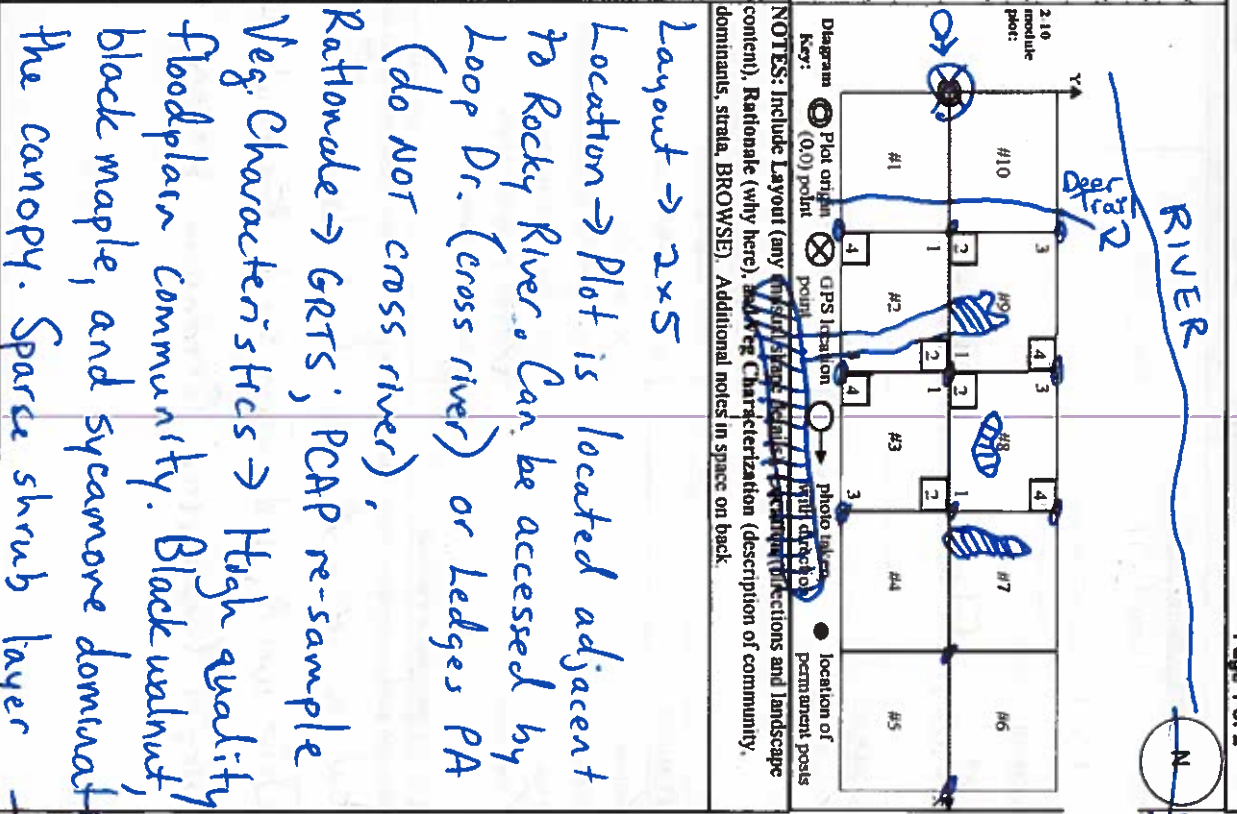 RIVER
N
Deer
Trail
2-10
module
plot:
Y
X
#10 #9 #8 #7 #6
#1 #2 #3 #4 #5
3 3 4 4
2 1 1 2 1 1
4 2 4 2 3
Diagram Key: Plot origin (0,0) point GPS location point photo taken with direction location of permanent posts
NOTES: Include Layout (any unusual shape details) Location (directions and landscape
content), Rationale (why here), and Veg Characterization (description of community,
dominants, strata, BROWSE). Additional notes in space on back.
Layout → 2x5
Location → Plot is located adjacent
to Rocky River. Can be accessed by
Loop Dr. (cross river) or Ledges PA
(do NOT cross river).
Rationale → GRTS; PCAP re-sample
Veg. Characteristics → High quality
floodplain community. Black walnut,
black maple, and sycamore dominat
the canopy. Sparse shrub layer